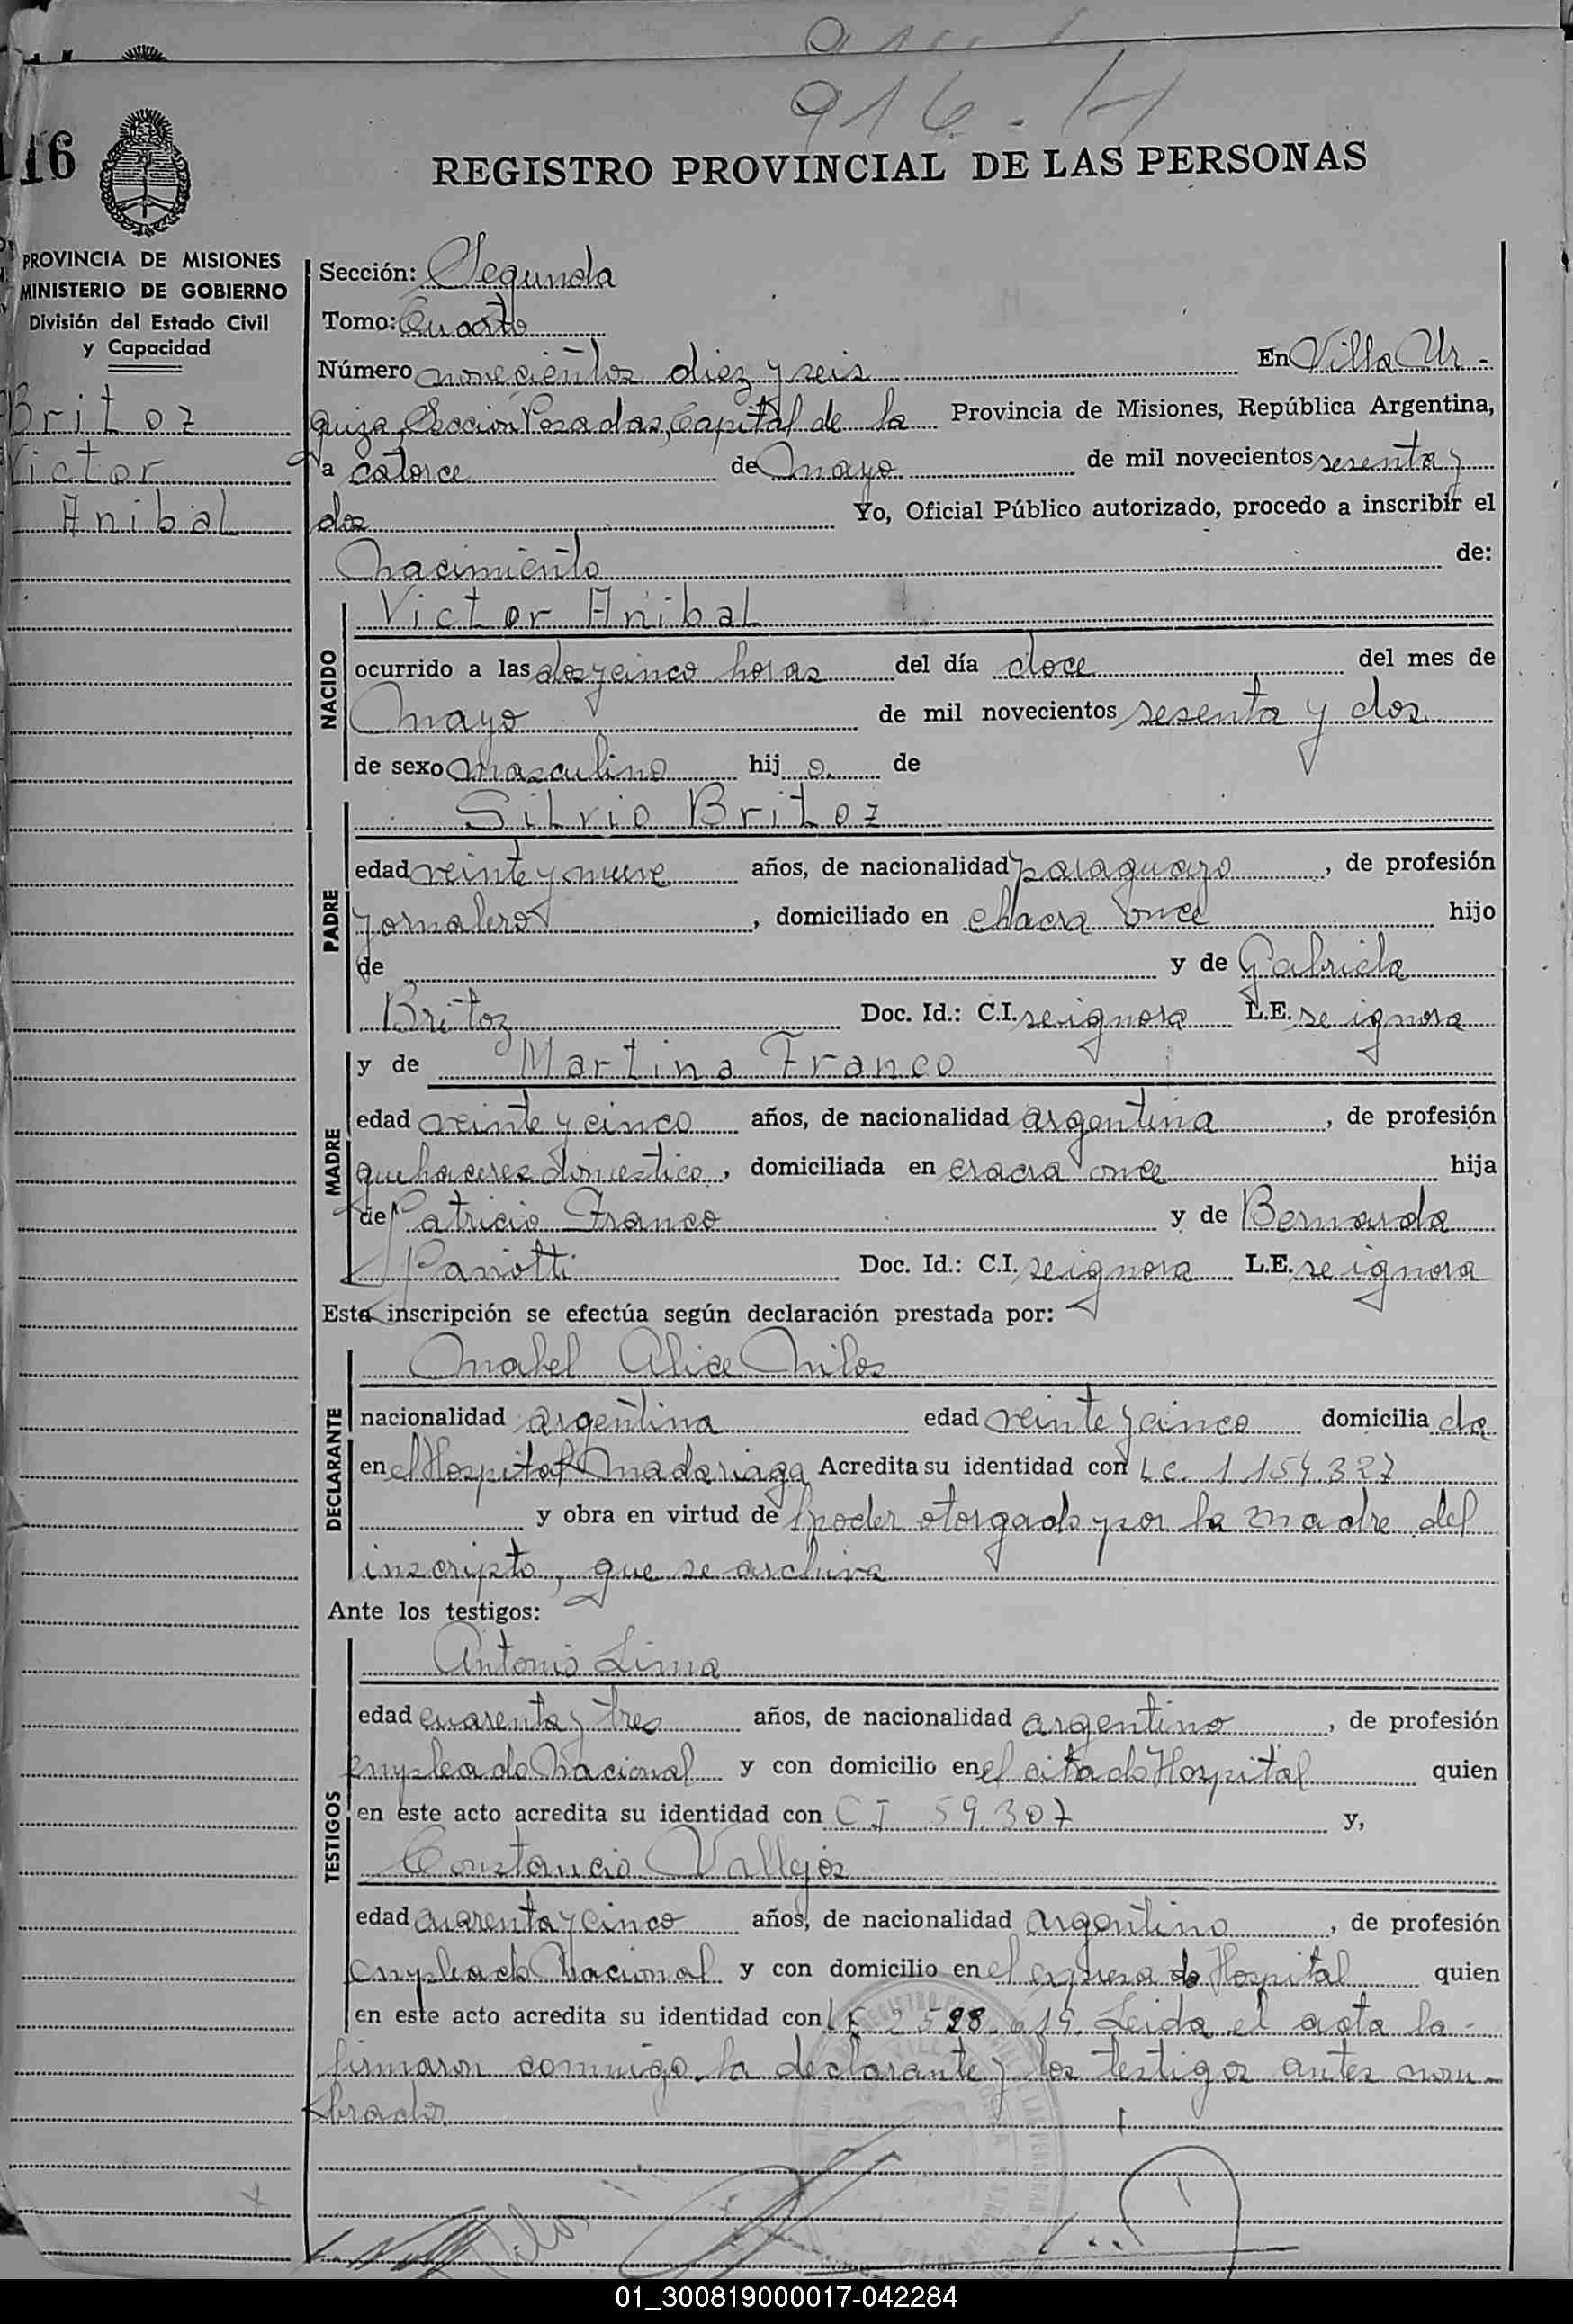 916 - H
116
REGISTRO PROVINCIAL DE LAS PERSONAS
PROVINCIA DE MISIONES
MINISTERIO DE GOBIERNO
División del Estado Civil
y Capacidad
Britoz
Victor
Anibal
Sección: Segunda
Tomo: Cuarto
Número novecientos diez y seis En Villa Ur-
quiza, Seccion Posadas, Capital de la Provincia de Misiones, República Argentina,
a catorce de mayo de mil novecientos sesenta y
dos Yo, Oficial Público autorizado, procedo a inscribir el
nacimiento de:
NACIDO
Victor Anibal
ocurrido a las dos y cinco horas del día doce del mes de
mayo de mil novecientos sesenta y dos
de sexo masculino hij o de
PADRE
Silvio Britoz
edad veinte y nueve años, de nacionalidad paraguayo, de profesión
jornalero, domiciliado en chacra once hijo
de y de Gabriela
Britoz Doc. Id.: C.I. se ignora L.E. se ignora
MADRE
y de Martina Franco
edad veinte y cinco años, de nacionalidad argentina, de profesión
quehaceres domestico, domiciliada en cracra once hija
de Patricio Franco y de Bernarda
Doc. Id.: C.I. se ignora L.E. se ignora
Esta inscripción se efectúa según declaración prestada por:
DECLARANTE
Mabel Alice
nacionalidad argentina edad veinte y cinco domicilia da
en el Hospital Madariaga Acredita su identidad con L.C. 1.154.327
y obra en virtud de poder otorgado por la madre del
inscripto, que se archiva
Ante los testigos:
TESTIGOS
Antonio Lima
edad cuarenta y tres años, de nacionalidad argentino, de profesión
empleado nacional y con domicilio en el citado Hospital quien
en este acto acredita su identidad con C I 59.307 y,
Constancio Vallejos
edad cuarenta y cinco años, de nacionalidad argentino, de profesión
empleado nacional y con domicilio en el expresado Hospital quien
en este acto acredita su identidad con L E 2528.619. Leida el acta la -
firmaron conmigo la declarante y los testigos antes nom-
brados
01_300819000017-042284